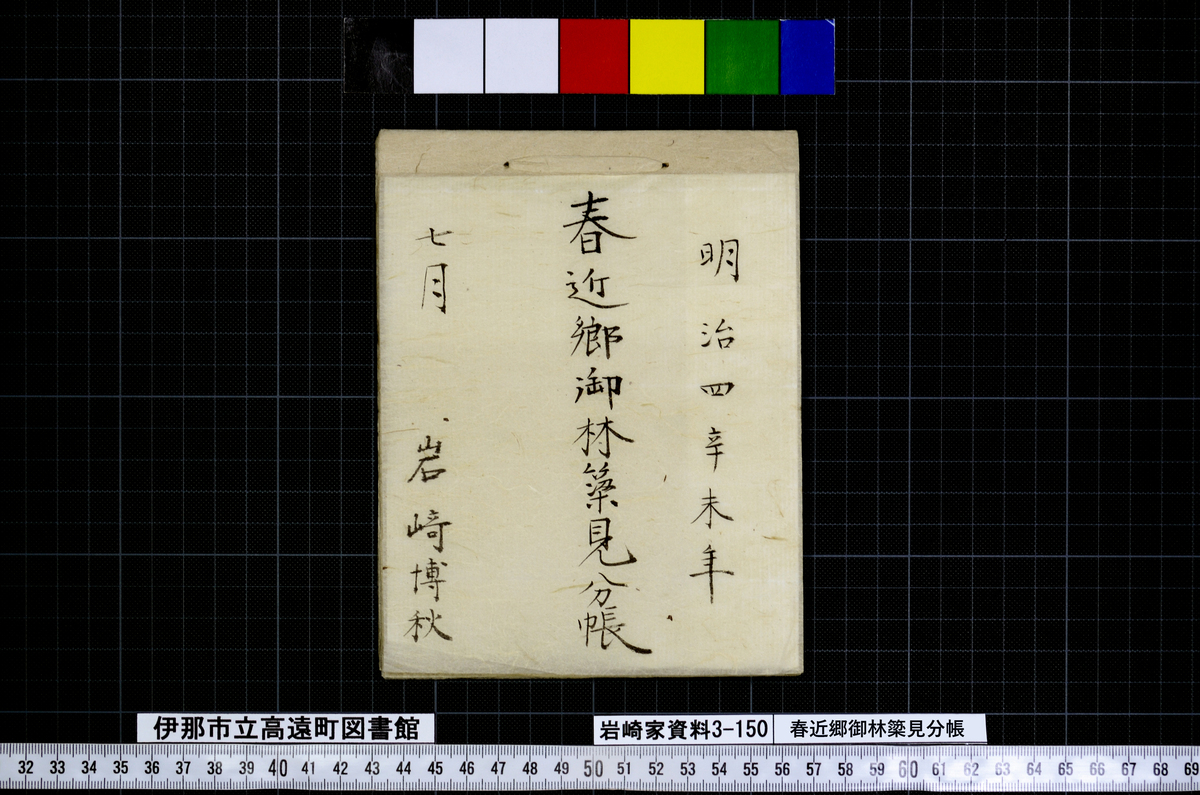 明治四辛未年
春近郷御林簗見分帳
七月
岩崎博秋
伊那市立高遠町図書館
岩崎家資料3-150
春近郷御林簗見分帳
32 33 34 35 36 37 38 39 40 41 42 43 44 45 46 47 48 49 50 51 52 53 54 55 56 57 58 59 60 61 62 63 64 65 66 67 68 69